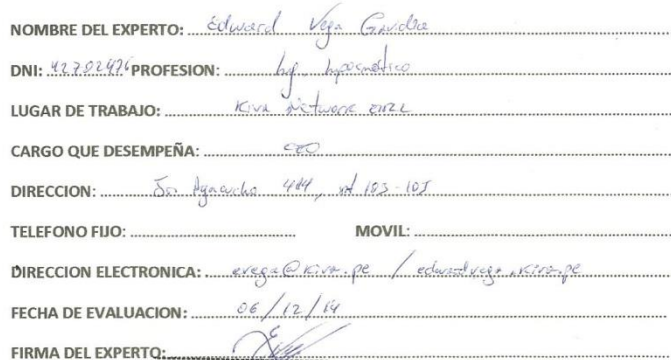 NOMBRE DEL EXPERTO: Edward Vega Gavidia
DNI: PROFESION: Ing. Informático
LUGAR DE TRABAJO: Kiva Network EIRL
CARGO QUE DESEMPEÑA: CEO
DIRECCION: Ayacucho 444, int 103-105
TELEFONO FIJO: MOVIL:
DIRECCION ELECTRONICA: evega@kiva.pe / edwardvega.kiva.pe
FECHA DE EVALUACION: 06/12/14
FIRMA DEL EXPERTO: